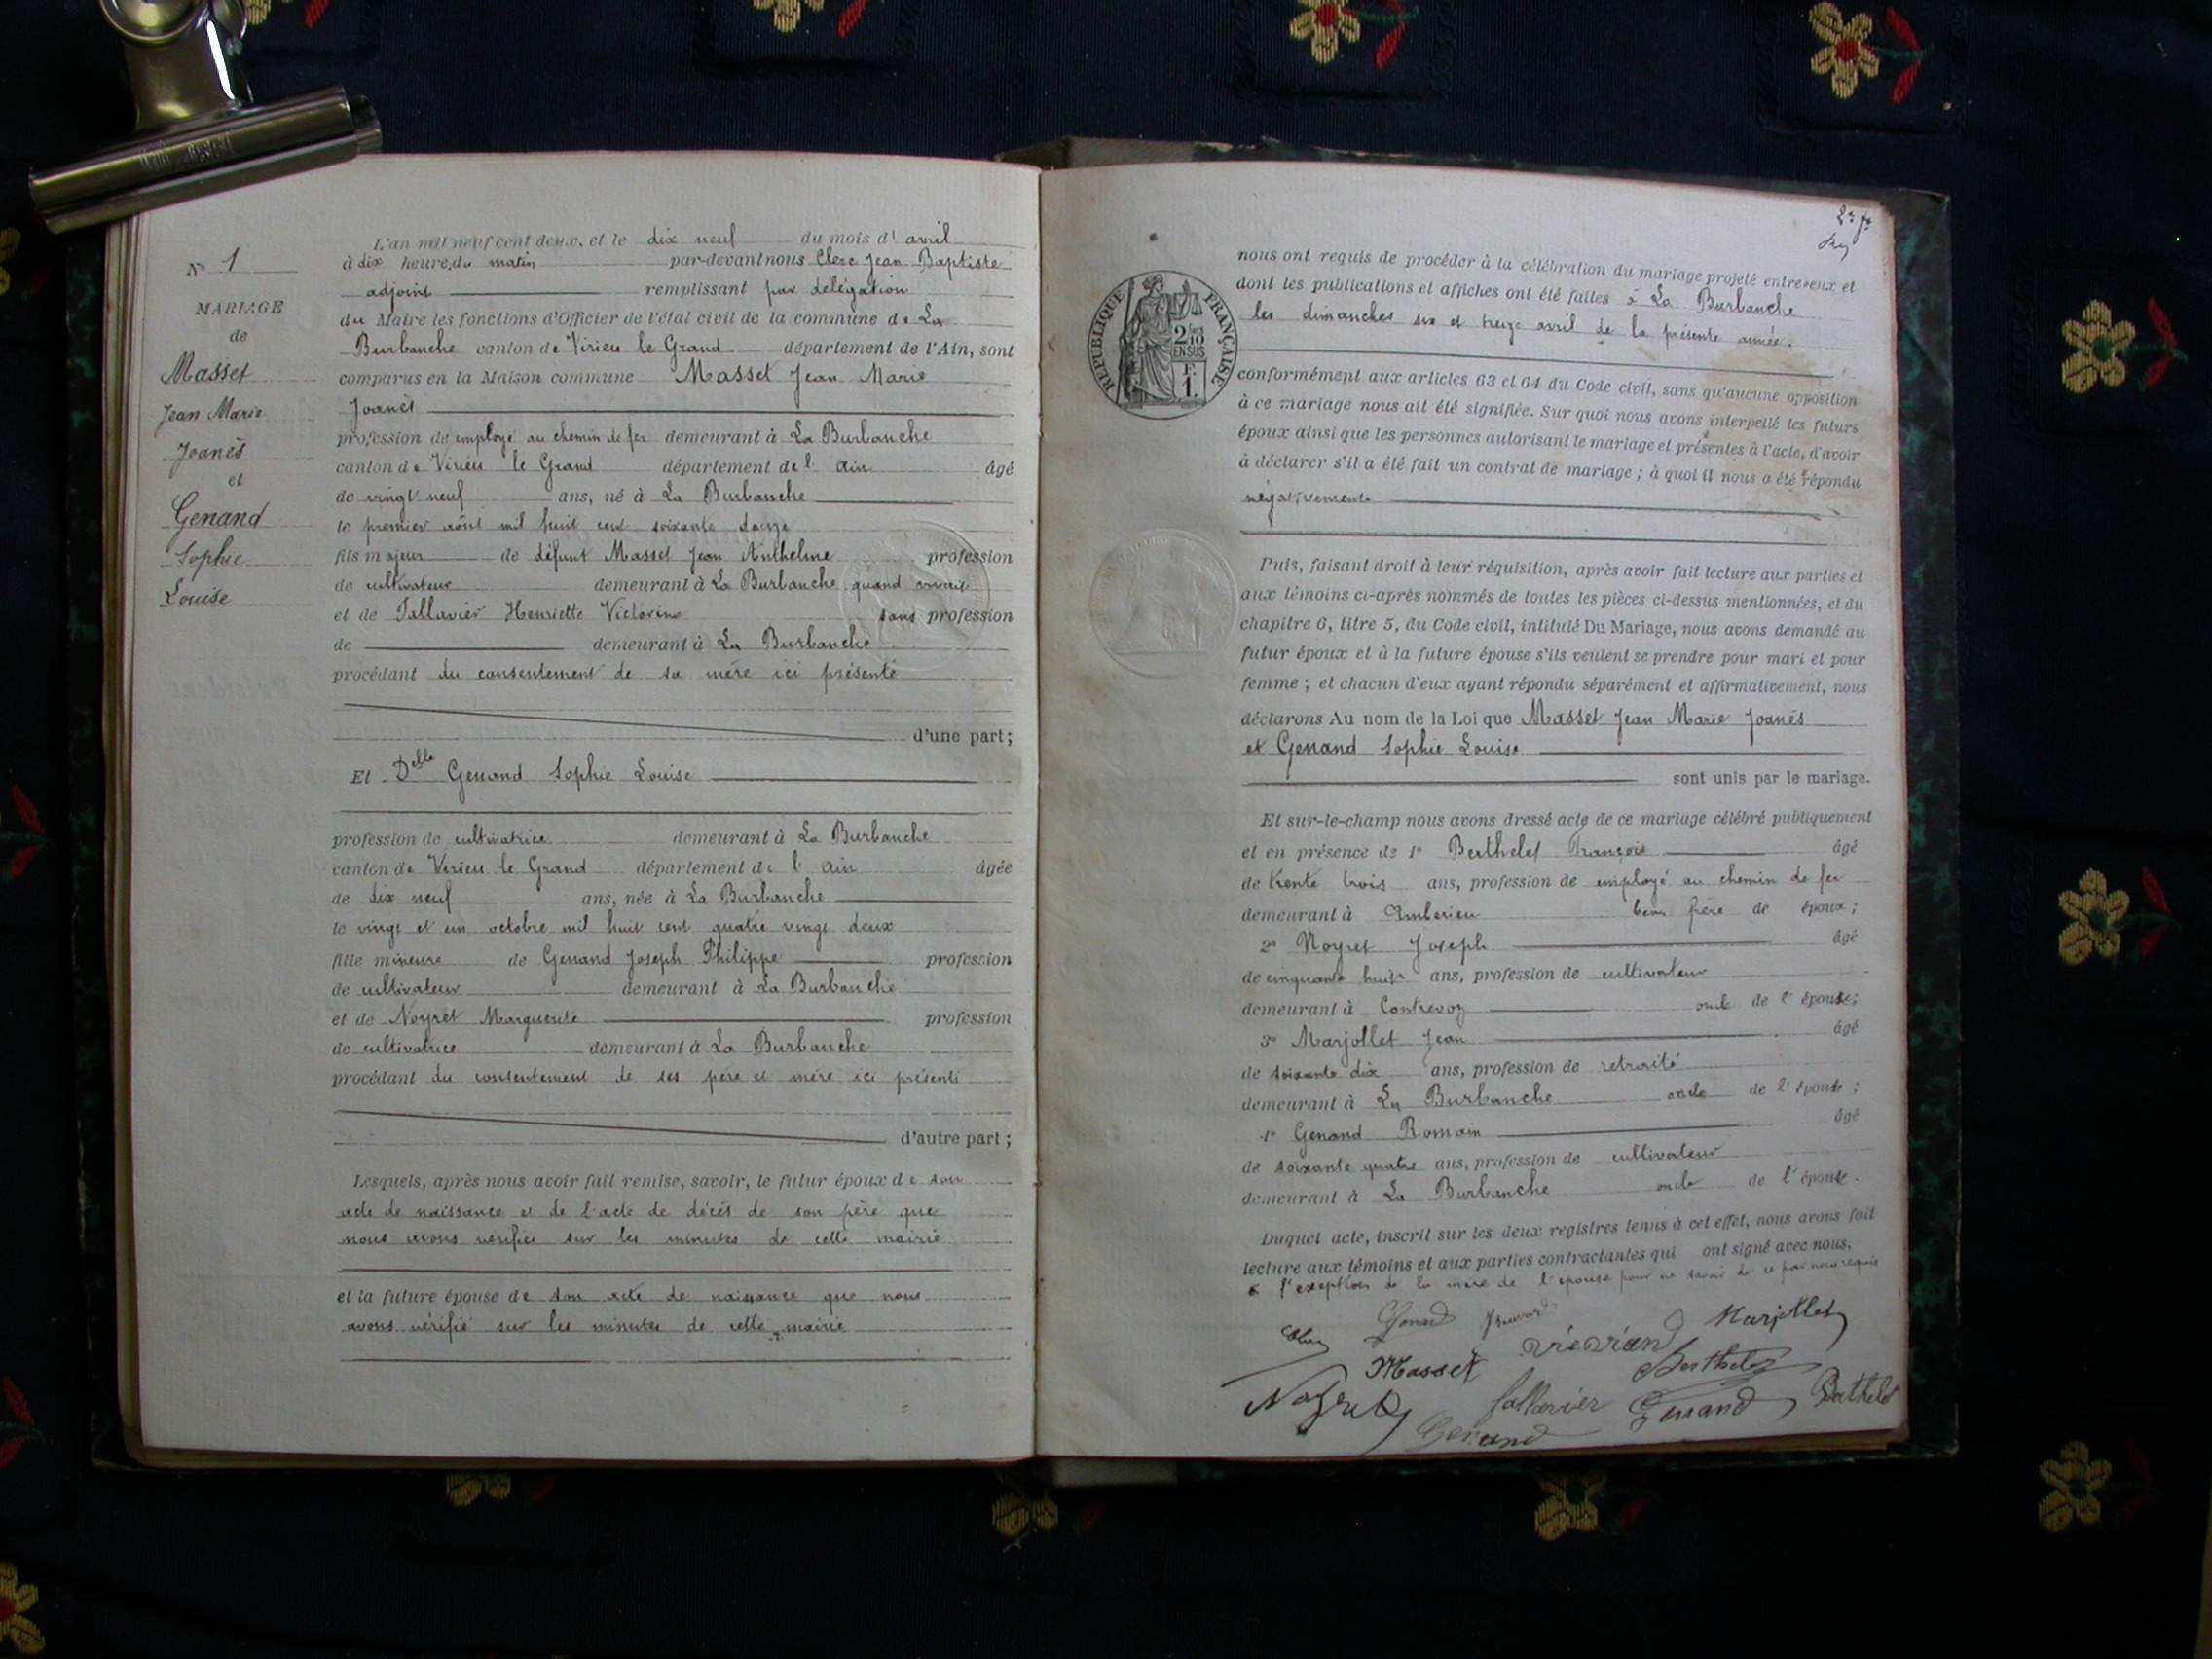 N° 1
MARIAGE
de
Masset
Jean Marie
Joanès
et
Genand
Sophie
Louise
L'an mil neuf cent deux, et le dix neuf du mois d' avril
à dix heure du matin par-devant nous Clerc Jean Baptiste
adjoint remplissant par délégation
du Maire les fonctions d'Officier de l'état civil de la commune de La
Burbanche canton de Virieu le Grand département de l'Ain, sont
comparus en la Maison commune Masset Jean Marie
Joanès
profession de employé au chemin de fer demeurant à La Burbanche
canton de Virieu le Grand département de l' Ain âgé
de vingt neuf ans, né à La Burbanche
le premier août mil huit cent soixante douze
fils majeur de défunt Masset Jean Anthelme profession
de cultivateur demeurant à La Burbanche quand vivait
et de Tallavier Henriette Victorine sans profession
de demeurant à La Burbanche
procédant du consentement de sa mère ici présente
d'une part;
Et Delle Genand Sophie Louise
profession de cultivatrice demeurant à La Burbanche
canton de Virieu le Grand département de l' Ain âgée
de dix neuf ans, née à La Burbanche
le vingt et un octobre mil huit cent quatre vingt deux
fille mineure de Genand Joseph Philippe profession
de cultivateur demeurant à La Burbanche
et de Noyret Marguerite profession
de cultivatrice demeurant à La Burbanche
procédant du consentement de ses père et mère ici présents
d'autre part;
Lesquels, après nous avoir fait remise, savoir, le futur époux de son
acte de naissance et de l'acte de décès de son père que
nous avons vérifiés sur les minutes de cette mairie
et la future épouse de son acte de naissance que nous
avons vérifié sur les minutes de cette mairie
RÉPUBLIQUE FRANÇAISE
2/10 EN SUS
F.
1.
nous ont requis de procéder à la célébration du mariage projeté entre eux et
dont les publications et affiches ont été faites à La Burbanche
les dimanches six et treize avril de la présente année.
conformément aux articles 63 et 64 du Code civil, sans qu'aucune opposition
à ce mariage nous ait été signifiée. Sur quoi nous avons interpellé les futurs
époux ainsi que les personnes autorisant le mariage et présentes à l'acte, d'avoir
à déclarer s'il a été fait un contrat de mariage ; à quoi il nous a été répondu
négativement
Puis, faisant droit à leur réquisition, après avoir fait lecture aux parties et
aux témoins ci-après nommés de toutes les pièces ci-dessus mentionnées, et du
chapitre 6, titre 5, du Code civil, intitulé Du Mariage, nous avons demandé au
futur époux et à la future épouse s'ils veulent se prendre pour mari et pour
femme ; et chacun d'eux ayant répondu séparément et affirmativement, nous
déclarons Au nom de la Loi que Masset Jean Marie Joanès
et Genand Sophie Louise
sont unis par le mariage.
Et sur-le-champ nous avons dressé acte de ce mariage célébré publiquement
et en présence de 1° Berthelet François âgé
de trente trois ans, profession de employé au chemin de fer
demeurant à Amberieu beau frère de époux ;
2° Noyret Joseph âgé
de cinquante huit ans, profession de cultivateur
demeurant à Contrevoz oncle de l' épouse;
3° Marjollet Jean âgé
de soixante dix ans, profession de retraité
demeurant à La Burbanche oncle de l' épouse ;
4° Genand Romain âgé
de soixante quatre ans, profession de cultivateur
demeurant à La Burbanche oncle de l' épouse.
Duquel acte, inscrit sur les deux registres tenus à cet effet, nous avons fait
lecture aux témoins et aux parties contractantes qui ont signé avec nous.
à l'exeption de la mère de l'épouse pour ne savoir de ce par nous requis
Genand Marjollet
Masset Berthelet
Noyret Tallavier Genand Berthelet
Genand